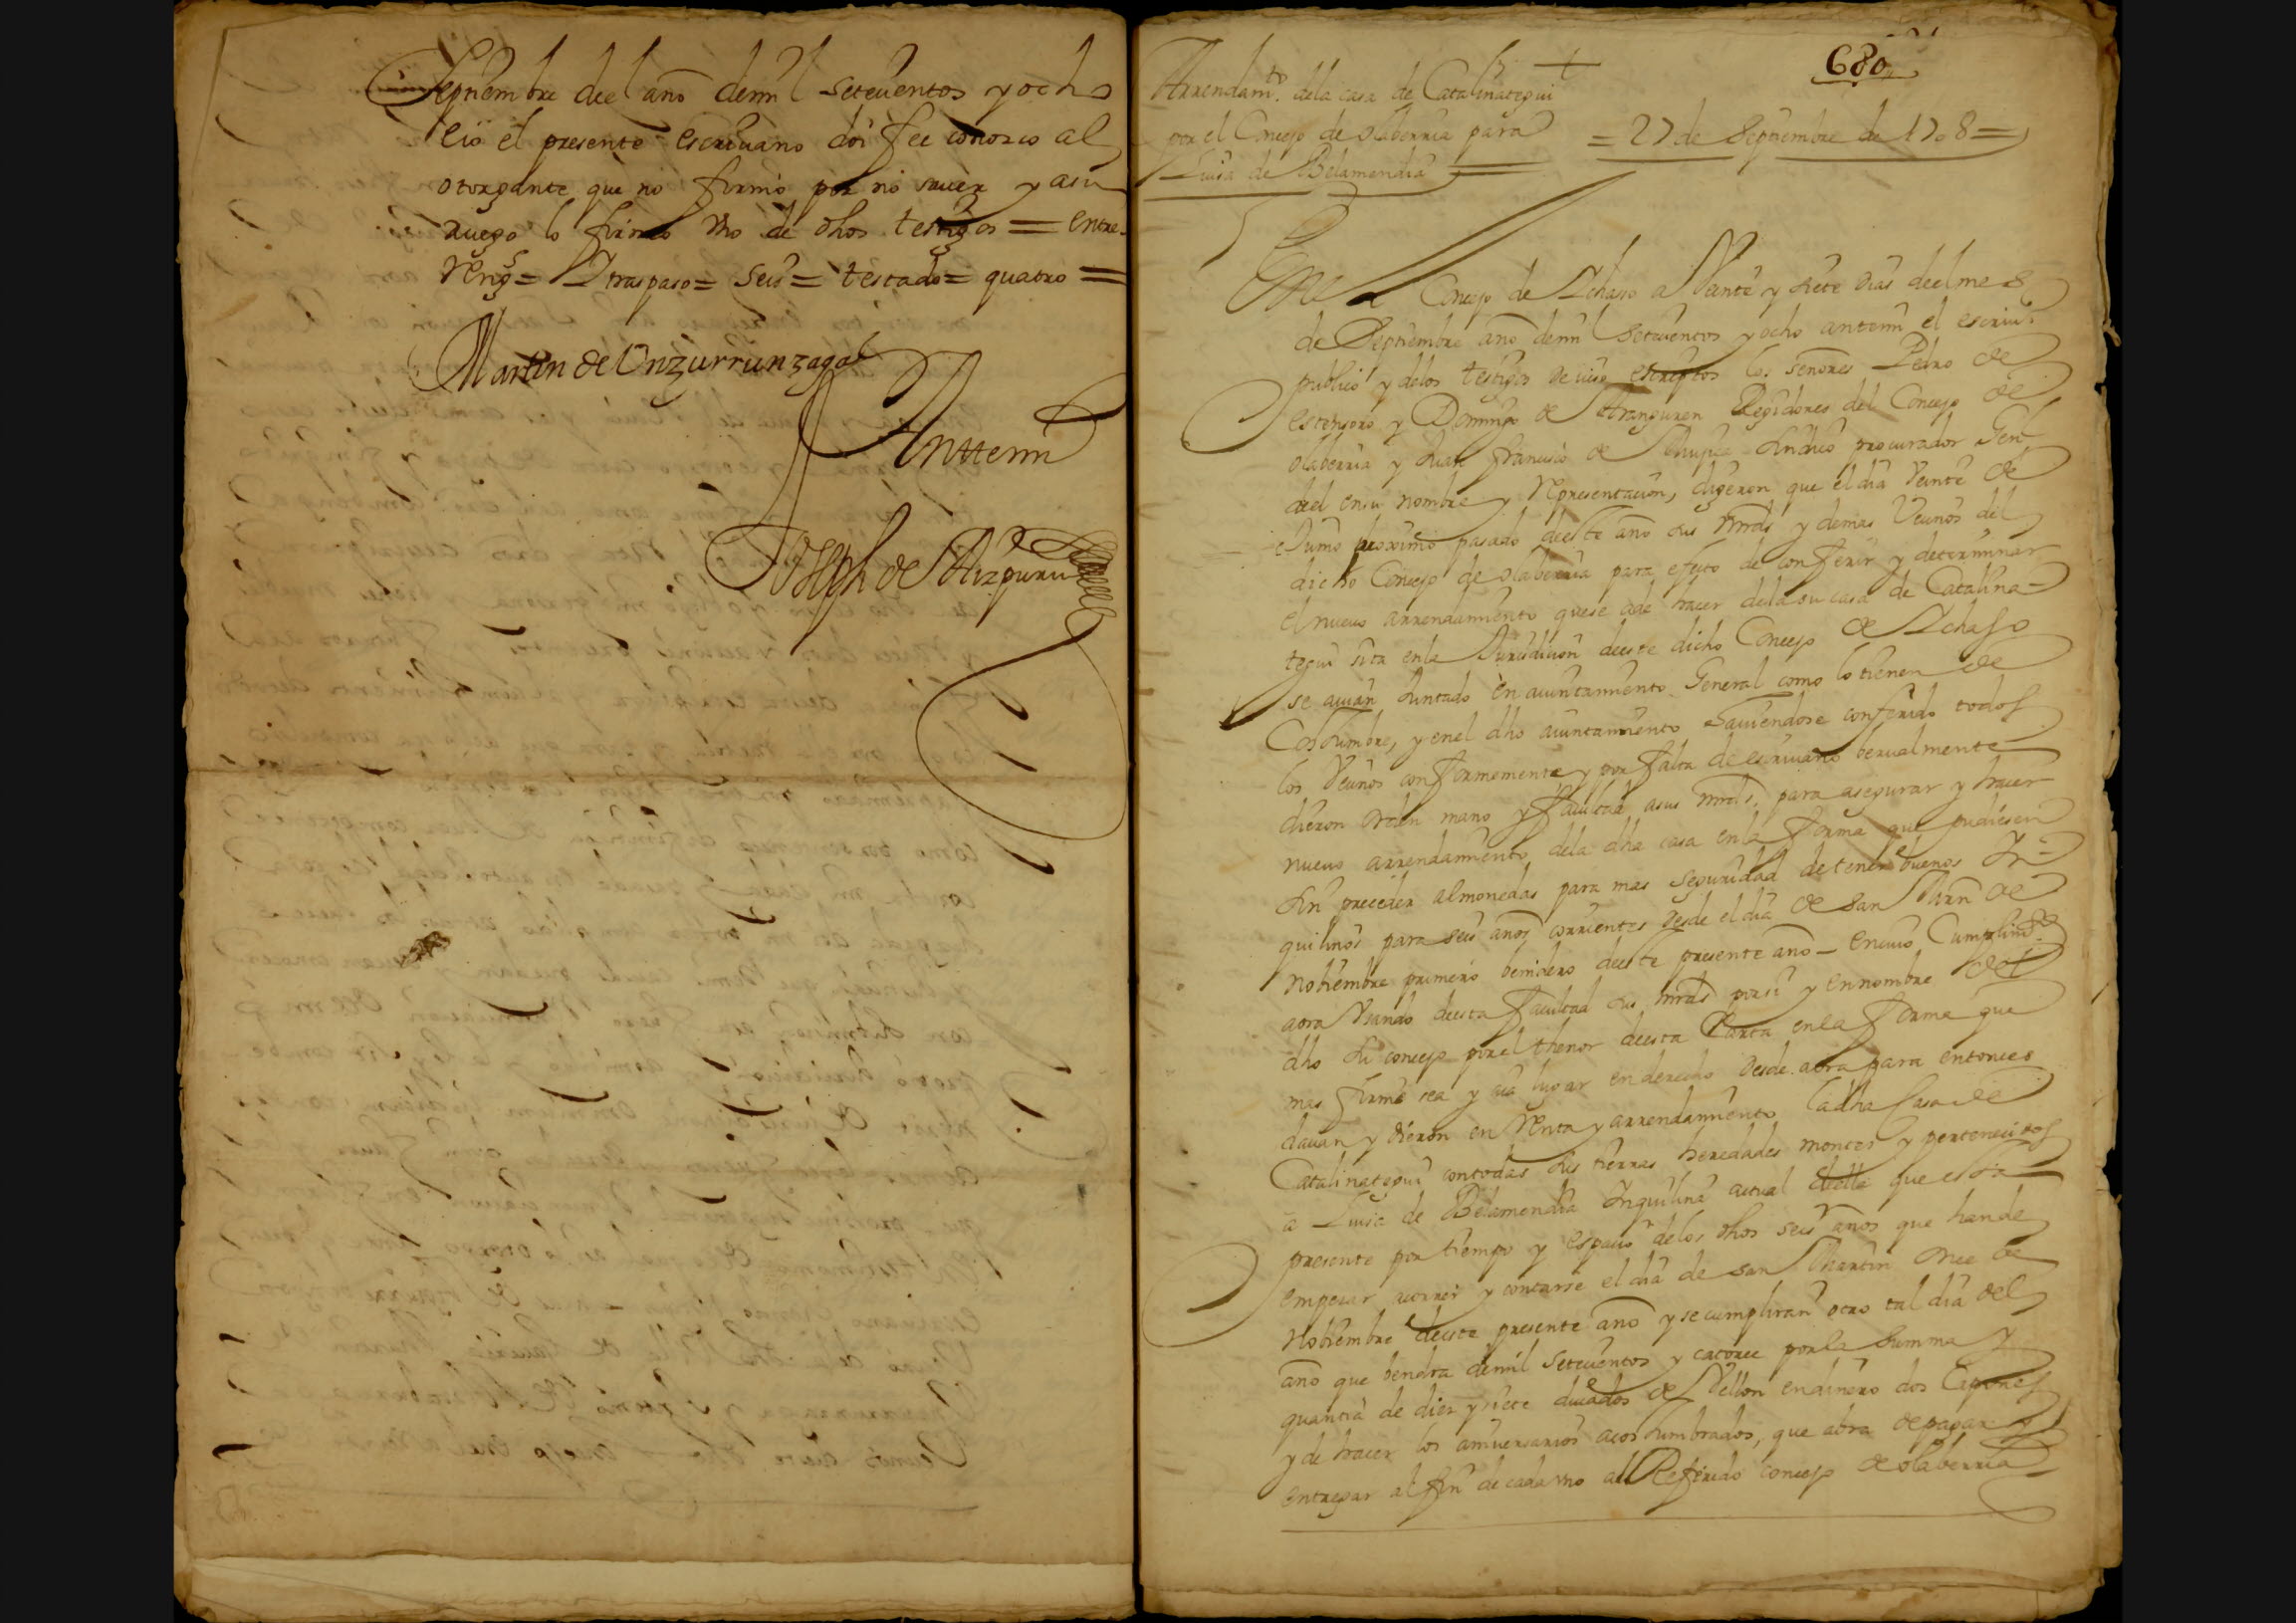 Septiembre deel año demil setecientos y ocho
e io el presente escriuano doi fee conozco al
otorgante que no firmò por no sauer y asu
ruego lo firmò vno de dhos testigos = entre
rengs = traspaso = seis = testado = quatro =
Martin de Unzurrunzaga
Anttemi
Joseph de Aizpuru
680
Arrendamto. dela casa de Catalinategui
por el Concejo de olaberria para
Luisa de Belamendia
= 27 de Septiembre de 1708 =
En el Concejo de Ichasso a Veinte y siete dias deel mes
de Septiembre año demil setecientos y ocho antemi el escriu.
publico y delos testigos de iuso escriptos los señores Pedro de
estensoro y Domingo de Aranguren Regidores del Concejo de
olaberria y Juan francisco de sindico procurador Genl
deel en su nombre y representacion, dixeron que el dia Veinte de
Junio proximo pasado deeste año sus mrds y demas Vecinos del
dicho Concejo de olaberria para efecto de conferir y determinar
el nueuo arrendamiento que se ade hacer dela su casa de Catalina=
tegui sita enla Jurisdicion deeste dicho Concejo de Ichasso
se auian Juntado en aiuntamiento General como lo tienen de
Costumbre, y enel dho aiuntamiento hauiendose conferido todos
los Vecinos conformemente y por falta de escriuano berualmente
dieron orden mano y facultad asus mrds. para asegurar y hacer
nueuo arrendamiento dela dha casa enla forma que pudiesen
sin preceder almonedas para mas seguridad detener buenos In=
quilinos para seis años corrientes desde el dia de San Mrn de
Nobiembre primero benidero deeste presente año = en cuio Cumplimto
aora Vsando deesta facultad sus mrds por si y en nombre del
dho su concejo por el thenor deesta Carta enla forma que
mas firme sea y aia lugar en derecho desde aora para entonces
dauan y dieron en Renta y arrendamiento la dha Casa de
Catalinategui contodas sus tierras heredades montes y pertenecidos
a Luisa de Belamendia Inquilina actual deella que esta
presente por tiempo y espacio delos dhos seis años que hande
empezar acorrer y contarse el dia de san Martin once de
Nobiembre deeste presente año y se cumpliran otro tal dia del
año que bendra demil setecientos y catorce porla summa y
quantia de diez y siete ducados de Vellon endinero dos Capones
y de hacer los aniuersarios acostumbrados, que abra depagar y
entregar al fin de cada vno al Referido concejo de olaberria